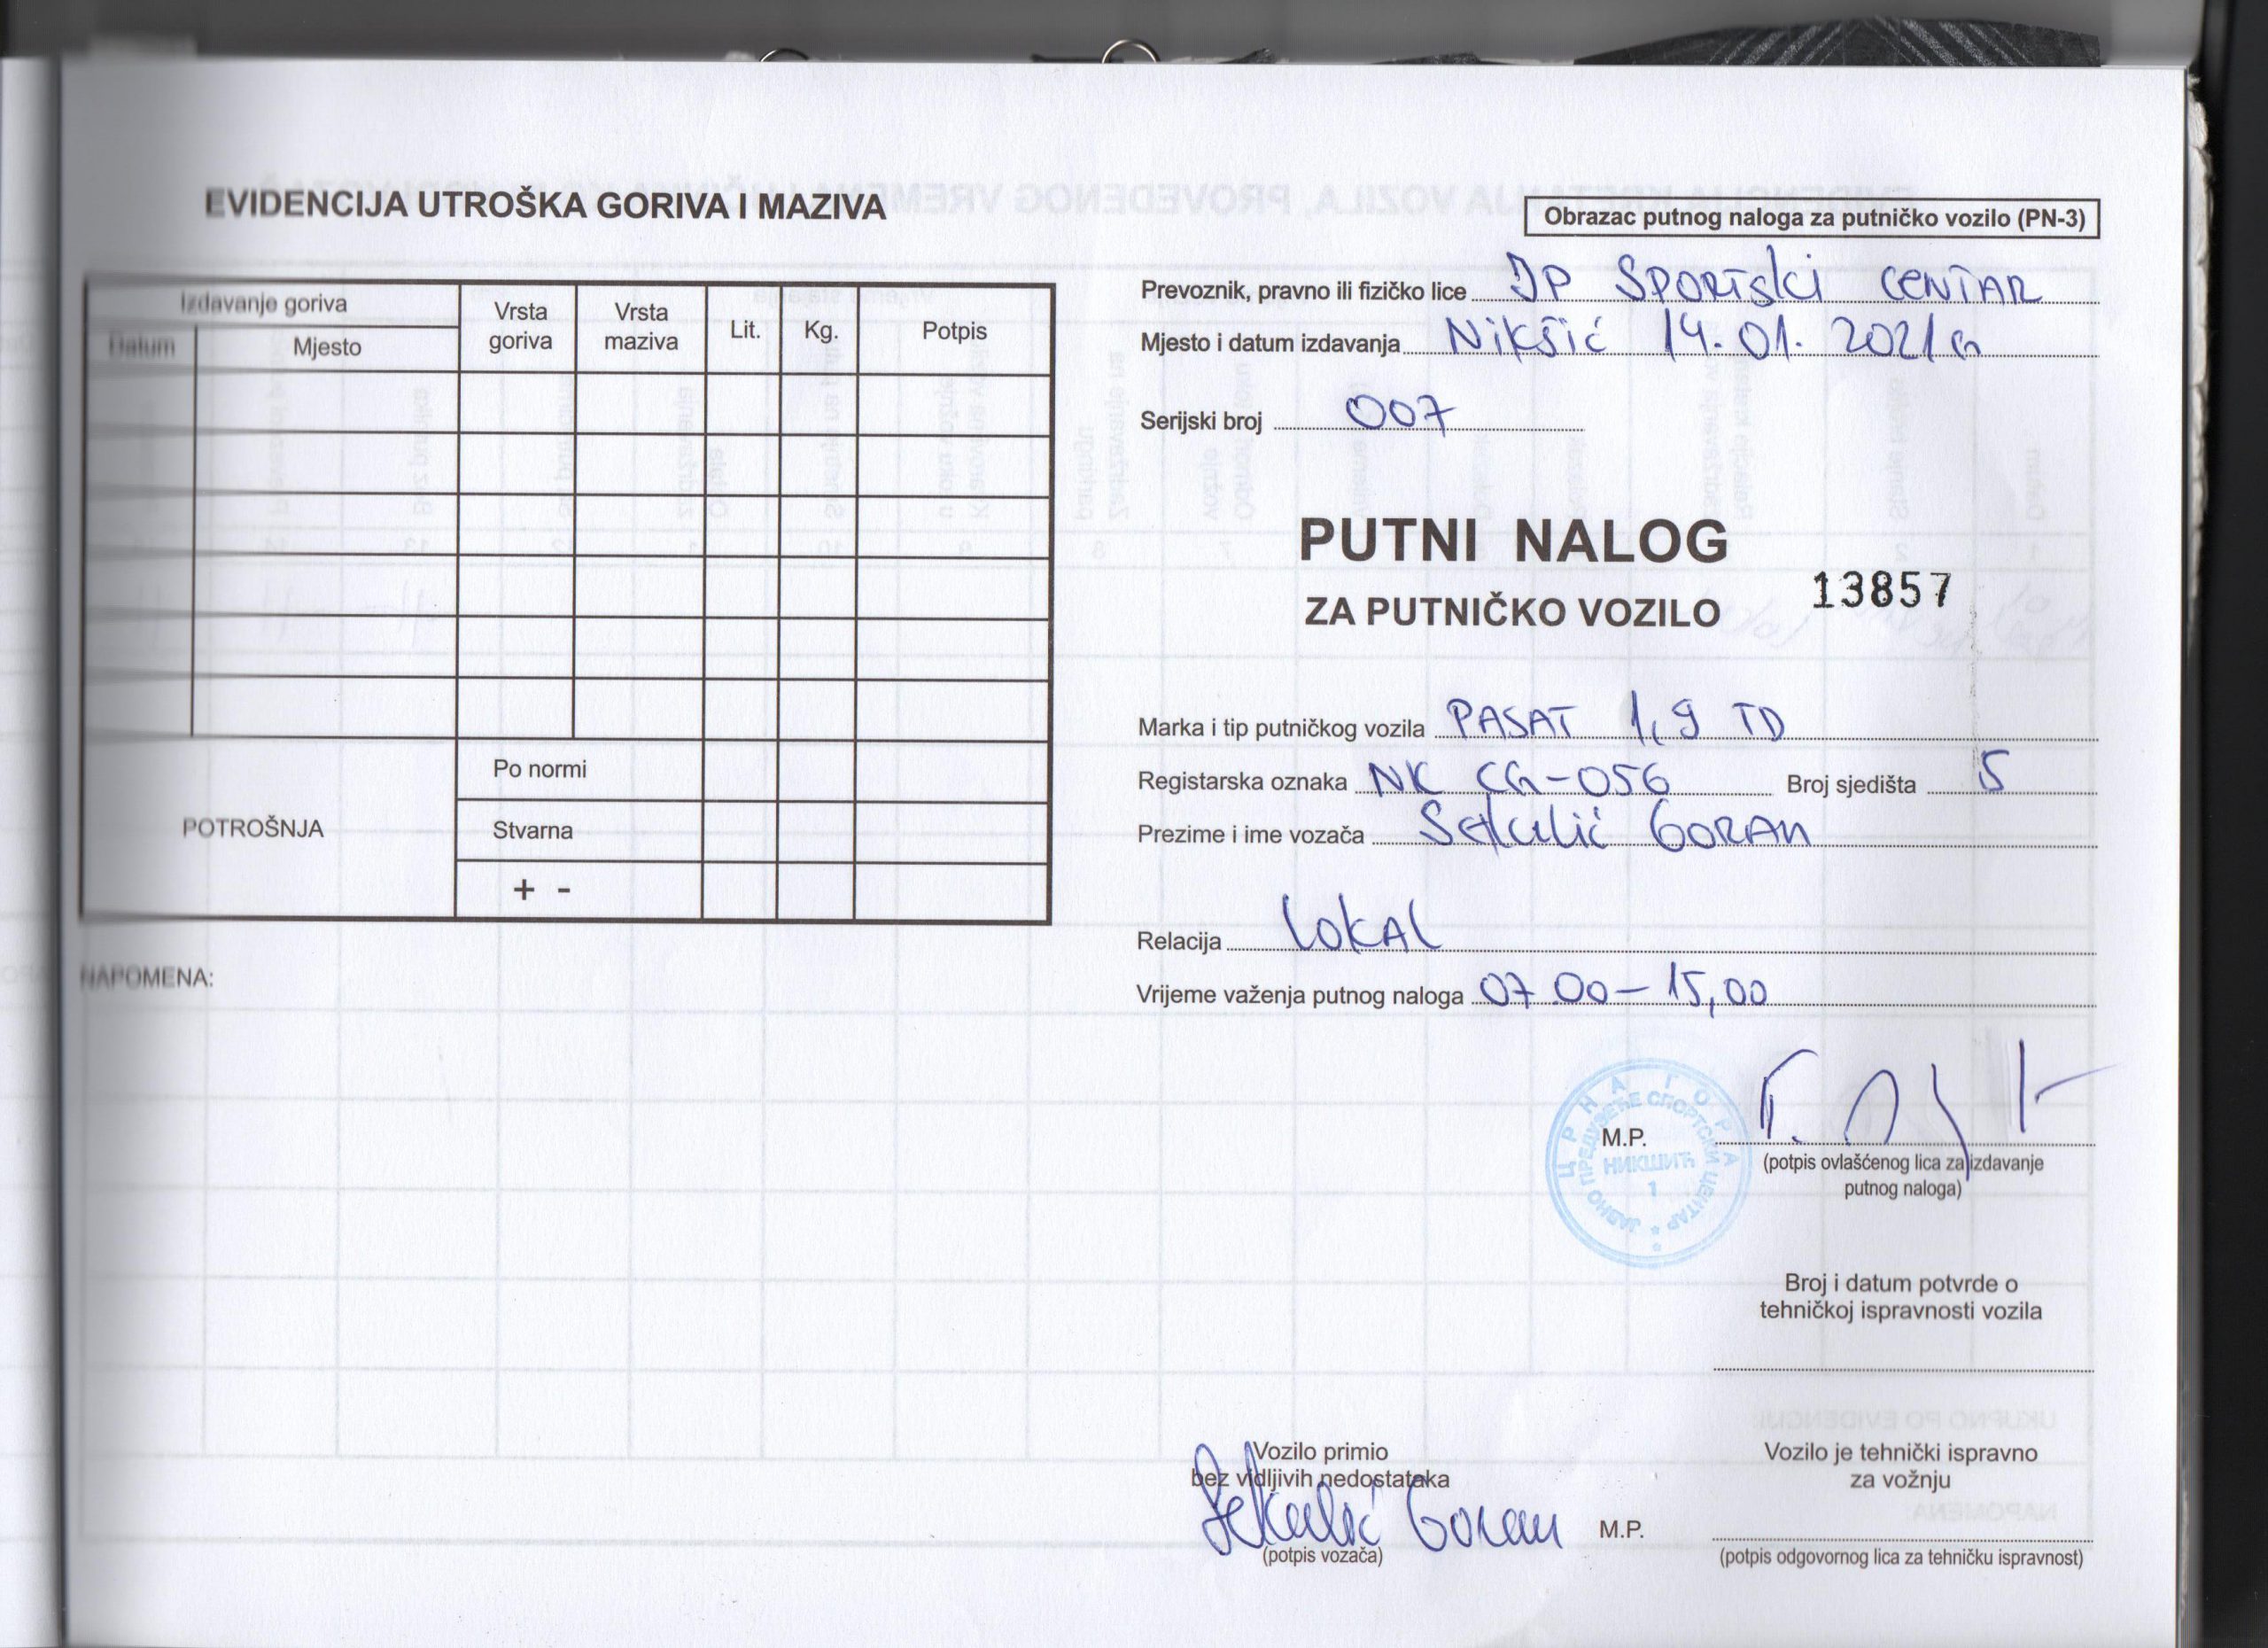 EVIDENCIJA UTROŠKA GORIVA I MAZIVA
Izdavanje goriva
Datum
Mjesto
Vrsta goriva
Vrsta maziva
Lit.
Kg.
Potpis
POTROŠNJA
Po normi
Stvarna
+ -
NAPOMENA:
Obrazac putnog naloga za putničko vozilo (PN-3)
Prevoznik, pravno ili fizičko lice JP SPORTSKI CENTAR
Mjesto i datum izdavanja Nikšić 14.01.2021 G
Serijski broj 007
PUTNI NALOG
ZA PUTNIČKO VOZILO
13857
Marka i tip putničkog vozila PASAT 1,9 TD
Registarska oznaka NK CG-056 Broj sjedišta 5
Prezime i ime vozača Sekulić GORAN
Relacija LOKAL
Vrijeme važenja putnog naloga 07.00-15,00
ЦРНА ГОРА
ЈАВНО ПРЕДУЗЕЋЕ СПОРТСКИ ЦЕНТАР
НИКШИЋ
1
M.P.
(potpis ovlašćenog lica za izdavanje
putnog naloga)
Broj i datum potvrde o
tehničkoj ispravnosti vozila
Vozilo primio
bez vidljivih nedostataka
Sekulić Goran
(potpis vozača)
M.P.
Vozilo je tehnički ispravno
za vožnju
(potpis odgovornog lica za tehničku ispravnost)